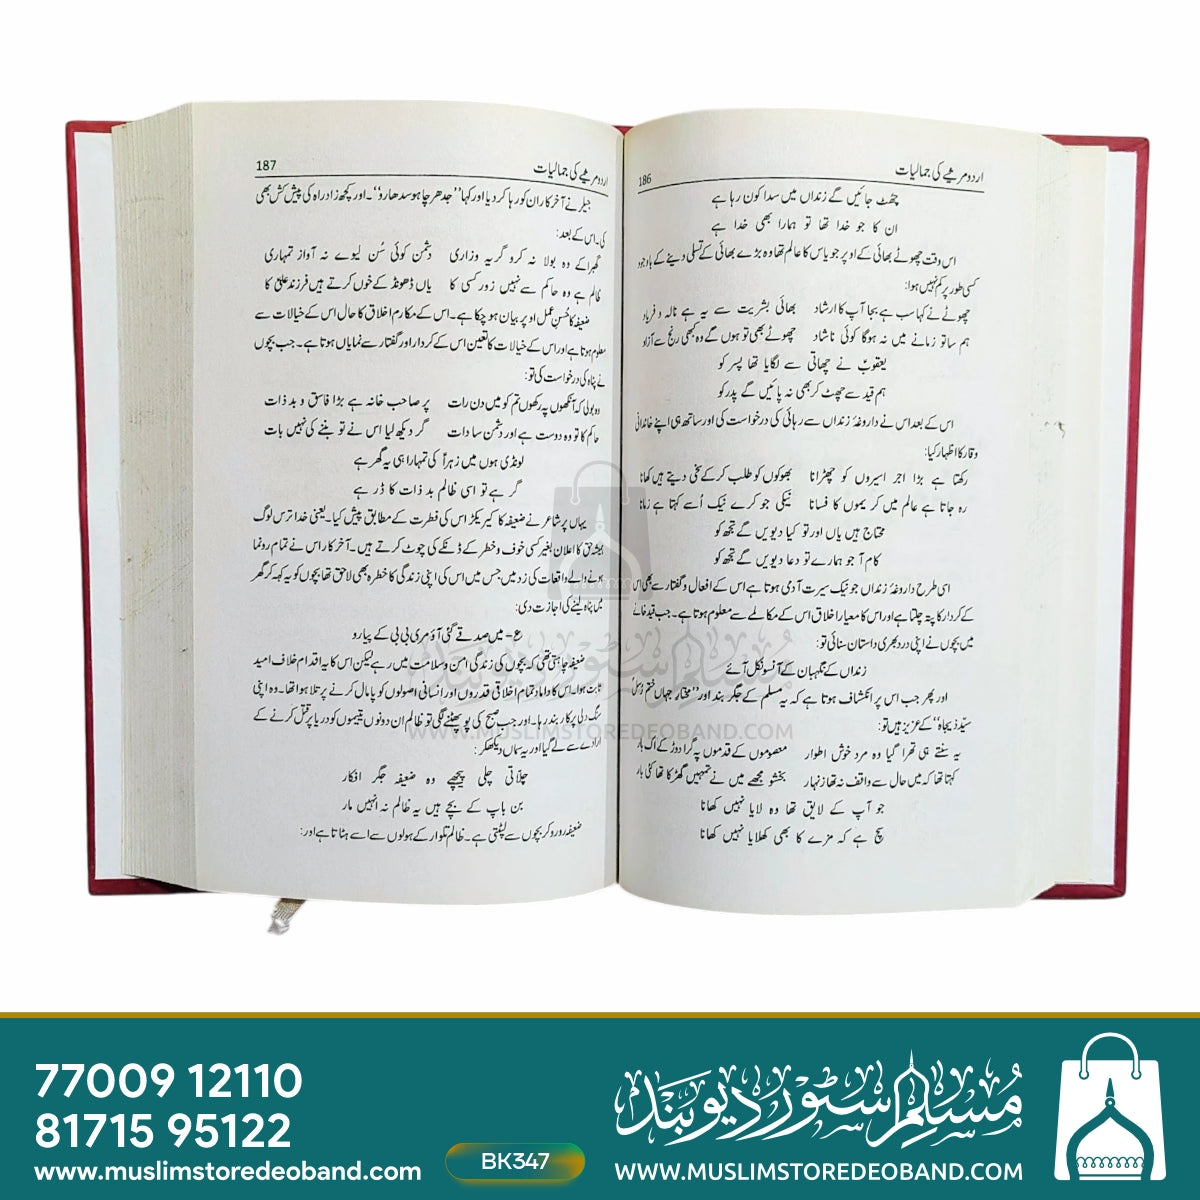 186
اردو مرثیے کی جمالیات
چھٹ جائیں گے زنداں میں سدا کون رہا ہے
ان کا جو خدا تھا تو ہمارا بھی خدا ہے
اس وقت چھوٹے بھائی کے اوپر جو یاس کا عالم تھا وہ بڑے بھائی کے تسلی دینے کے باوجود
کسی طور پر کم نہیں ہوا:
چھوٹے نے کہا سب ہے بجا آپ کا ارشاد بھائی بشریت سے یہ ہے نالہ و فریاد
ہم ساتو زمانے میں نہ ہوگا کوئی ناشاد چھوٹے بھی تو ہوں گے وہ کبھی رنج سے آزاد
یعقوبؑ نے چھاتی سے لگایا تھا پسر کو
ہم قید سے چھٹ کر بھی نہ پائیں گے پدر کو
اس کے بعد اس نے داروغۂ زنداں سے رہائی کی درخواست کی اور ساتھ ہی اپنے خاندانی
وقار کا اظہار کیا:
رکھتا ہے بڑا اجر اسیروں کو چھڑانا بھوکوں کو طلب کر کے سخی دیتے ہیں کھانا
رہ جاتا ہے عالم میں کریموں کا فسانا نیکی جو کرے نیک اُسے کہتا ہے زمانا
محتاج ہیں یاں اور تو کیا دیویں گے تجھ کو
کام آ جو ہمارے تو دعا دیویں گے تجھ کو
اسی طرح داروغۂ زنداں جو نیک سیرت آدمی ہوتا ہے اس کے افعال و گفتار سے بھی اس
کے کردار کا پتہ چلتا ہے اور اس کا معیار اخلاق اس کے مکالمے سے معلوم ہوتا ہے۔ جب قید خانے
میں بچوں نے اپنی درد بھری داستان سنائی تو:
زنداں کے نگہبان کے آنسو نکل آئے
اور پھر جب اس پر انکشاف ہوتا ہے کہ یہ مسلم کے جگر بند اور ''مختارِ جہاں ختم رسل
سیّد ذیجاہ'' کے عزیز ہیں تو:
یہ سنتے ہی تھرا گیا وہ مرد خوش اطوار معصوموں کے قدموں پہ گرا دوڑ کے اک بار
کہتا تھا کہ میں حال سے واقف نہ تھا زنہار بخشو مجھے میں نے تمہیں گھڑکا تھا کئی بار
جو آپ کے لایق تھا وہ لایا نہیں کھانا
سچ ہے کہ مزے کا بھی کھلایا نہیں کھانا
187
اردو مرثیے کی جمالیات
جیلر نے آخرکار ان کو رہا کر دیا اور کہا ''جدھر چاہو سدھارو''۔ اور کچھ زاد راہ کی پیش کش بھی
کی۔ اس کے بعد:
گھبرا کے وہ بولا نہ کرو گریہ و زاری دشمن کوئی سُن لیوے نہ آواز تمہاری
ظالم ہے وہ حاکم سے نہیں زور کسی کا یاں ڈھونڈ کے خوں کرتے ہیں فرزند علیؑ کا
ضعیفہ کا حُسنِ عمل اوپر بیان ہو چکا ہے۔ اس کے مکارم اخلاق کا حال اس کے خیالات سے
معلوم ہوتا ہے اور اس کے خیالات کا تعین اس کے کردار اور گفتار سے نمایاں ہوتا ہے۔ جب بچوں
نے پناہ کی درخواست کی تو:
وہ بولی کہ آنکھوں پہ رکھوں تم کو میں دن رات پر صاحب خانہ ہے بڑا فاسق و بد ذات
حاکم کا تو وہ دوست ہے اور دشمن سادات گر دیکھ لیا اس نے تو بننے کی نہیں بات
لونڈی ہوں میں زہراؑ کی تمہارا ہی یہ گھر ہے
گر ہے تو اسی ظالم بد ذات کا ڈر ہے
یہاں پر شاعر نے ضعیفہ کا کیریکٹر اس کی فطرت کے مطابق پیش کیا۔ یعنی خدا ترس لوگ
ہمیشہ حق کا اعلان بغیر کسی خوف و خطر کے ڈنکے کی چوٹ کرتے ہیں۔ آخرکار اس نے تمام رونما
ہونے والے واقعات کی زد میں جس میں اس کی اپنی زندگی کا خطرہ بھی لاحق تھا بچوں کو یہ کہہ کر گھر
میں پناہ لینے کی اجازت دی:
ع- میں صدقے گئی آؤ مری بی بی کے پیارو
ضعیفہ چاہتی تھی کہ بچوں کی زندگی امن و سلامت میں رہے لیکن اس کا یہ اقدام خلاف امید
ثابت ہوا۔ اس کا داماد تمام اخلاقی قدروں اور انسانی اصولوں کو پامال کرنے پر تلا ہوا تھا۔ وہ اپنی
سنگ دلی پر کاربند رہا۔ اور جب صبح کی پو پھٹنے لگی تو ظالم ان دونوں یتیموں کو دریا پر قتل کرنے کے
ارادے سے لے گیا اور یہ سماں دیکھ کر:
چلاتی چلی پیچھے وہ ضعیفہ جگر افکار
بن باپ کے بچے ہیں یہ ظالم نہ انہیں مار
ضعیفہ رو رو کر بچوں سے لپٹتی ہے۔ ظالم تلوار کے ہولوں سے اسے ہٹاتا ہے اور:
مسلم سٹور دیوبند
WWW.MUSLIMSTOREDEOBAND.COM
77009 12110
81715 95122
www.muslimstoredeoband.com
BK347
مسلم سٹور دیوبند
WWW.MUSLIMSTOREDEOBAND.COM